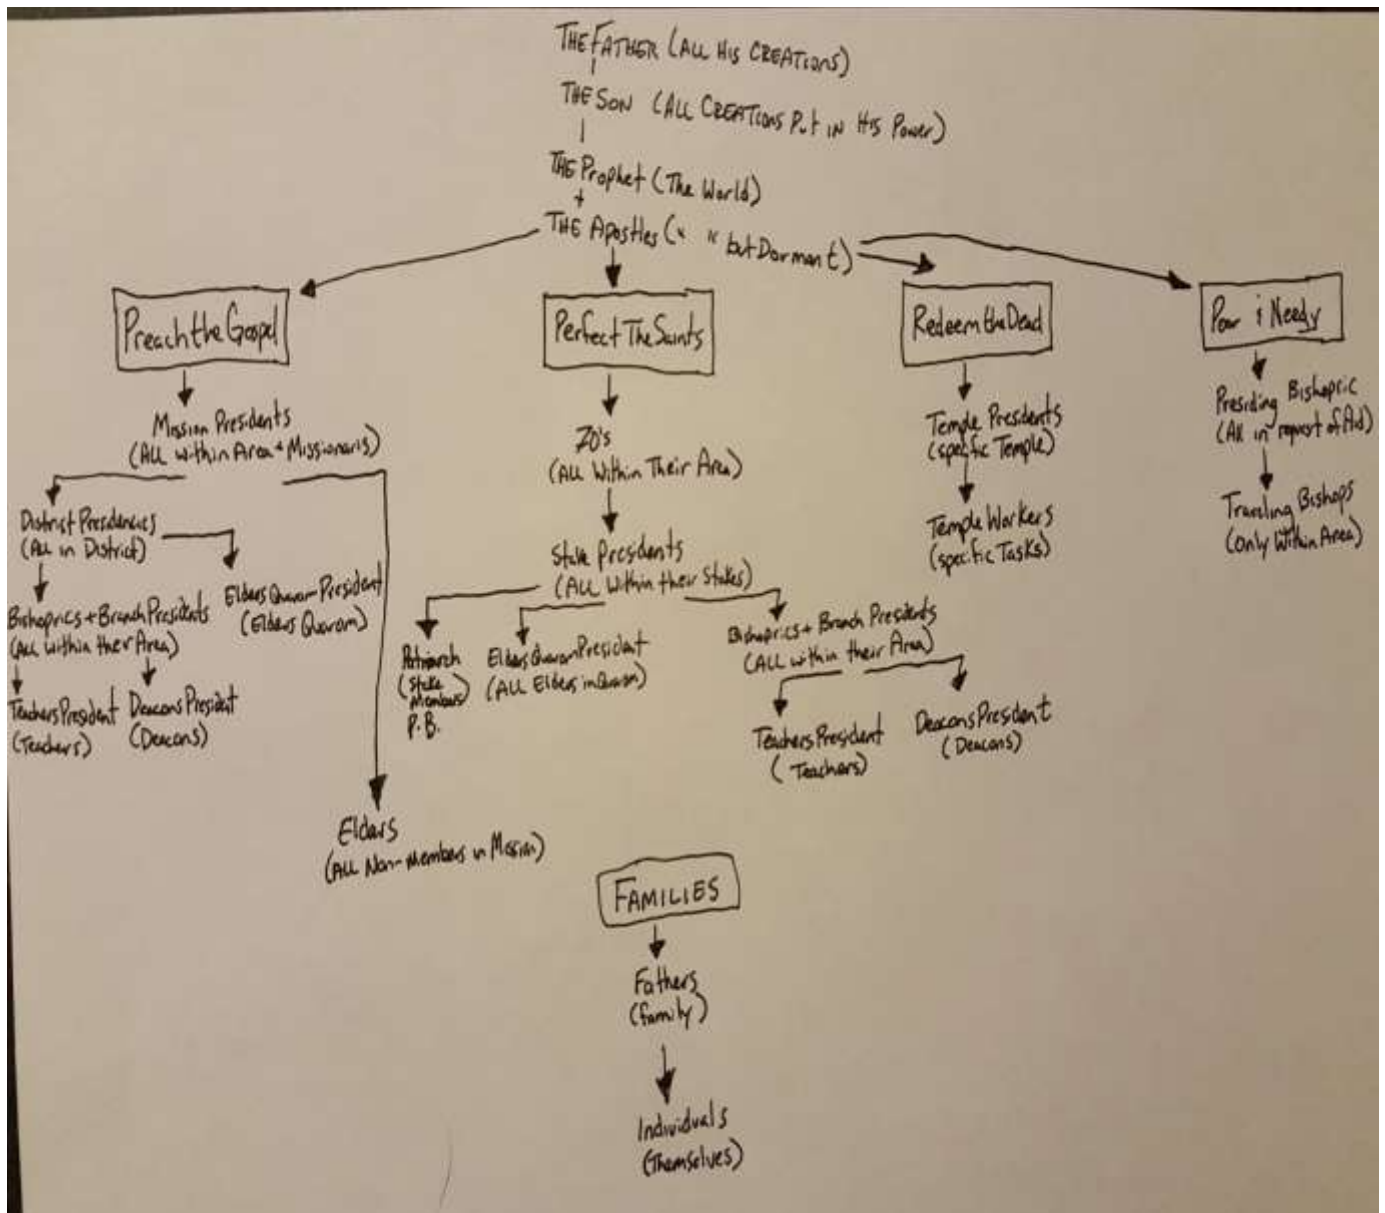 THE FATHER (ALL HIS CREATIONS)
THE SON (ALL CREATIONS PUT IN HIS POWER)
THE Prophet (The World)
+
THE Apostles (" " but Dormant)
Preach the Gospel
Perfect The Saints
Redeem the Dead
Poor & Needy
Mission Presidents
(ALL within Area + Missionaris)
District Presidencies
(ALL in District)
Elders Quorom President
(Elders Quorom)
Bishoprics + Branch Presidents
(ALL within their Area)
Teachers President
(Teachers)
Deacons President
(Deacons)
Elders
(ALL Non-members in Mission)
70's
(ALL Within Their Area)
Stake Presidents
(ALL Within their Stakes)
Patriarch
(Stake
Members
P.B.
Elders Quorom President
(ALL Elders in Quorom)
Bishoprics + Branch Presidents
(ALL within their Area)
Teachers President
(Teachers)
Deacons President
(Deacons)
Temple Presidents
(specific Temple)
Temple Workers
(specific Tasks)
Presiding Bishopric
(All in request of Aid)
Traveling Bishops
(Only Within Area)
FAMILIES
Fathers
(family)
Individuals
(Themselves)